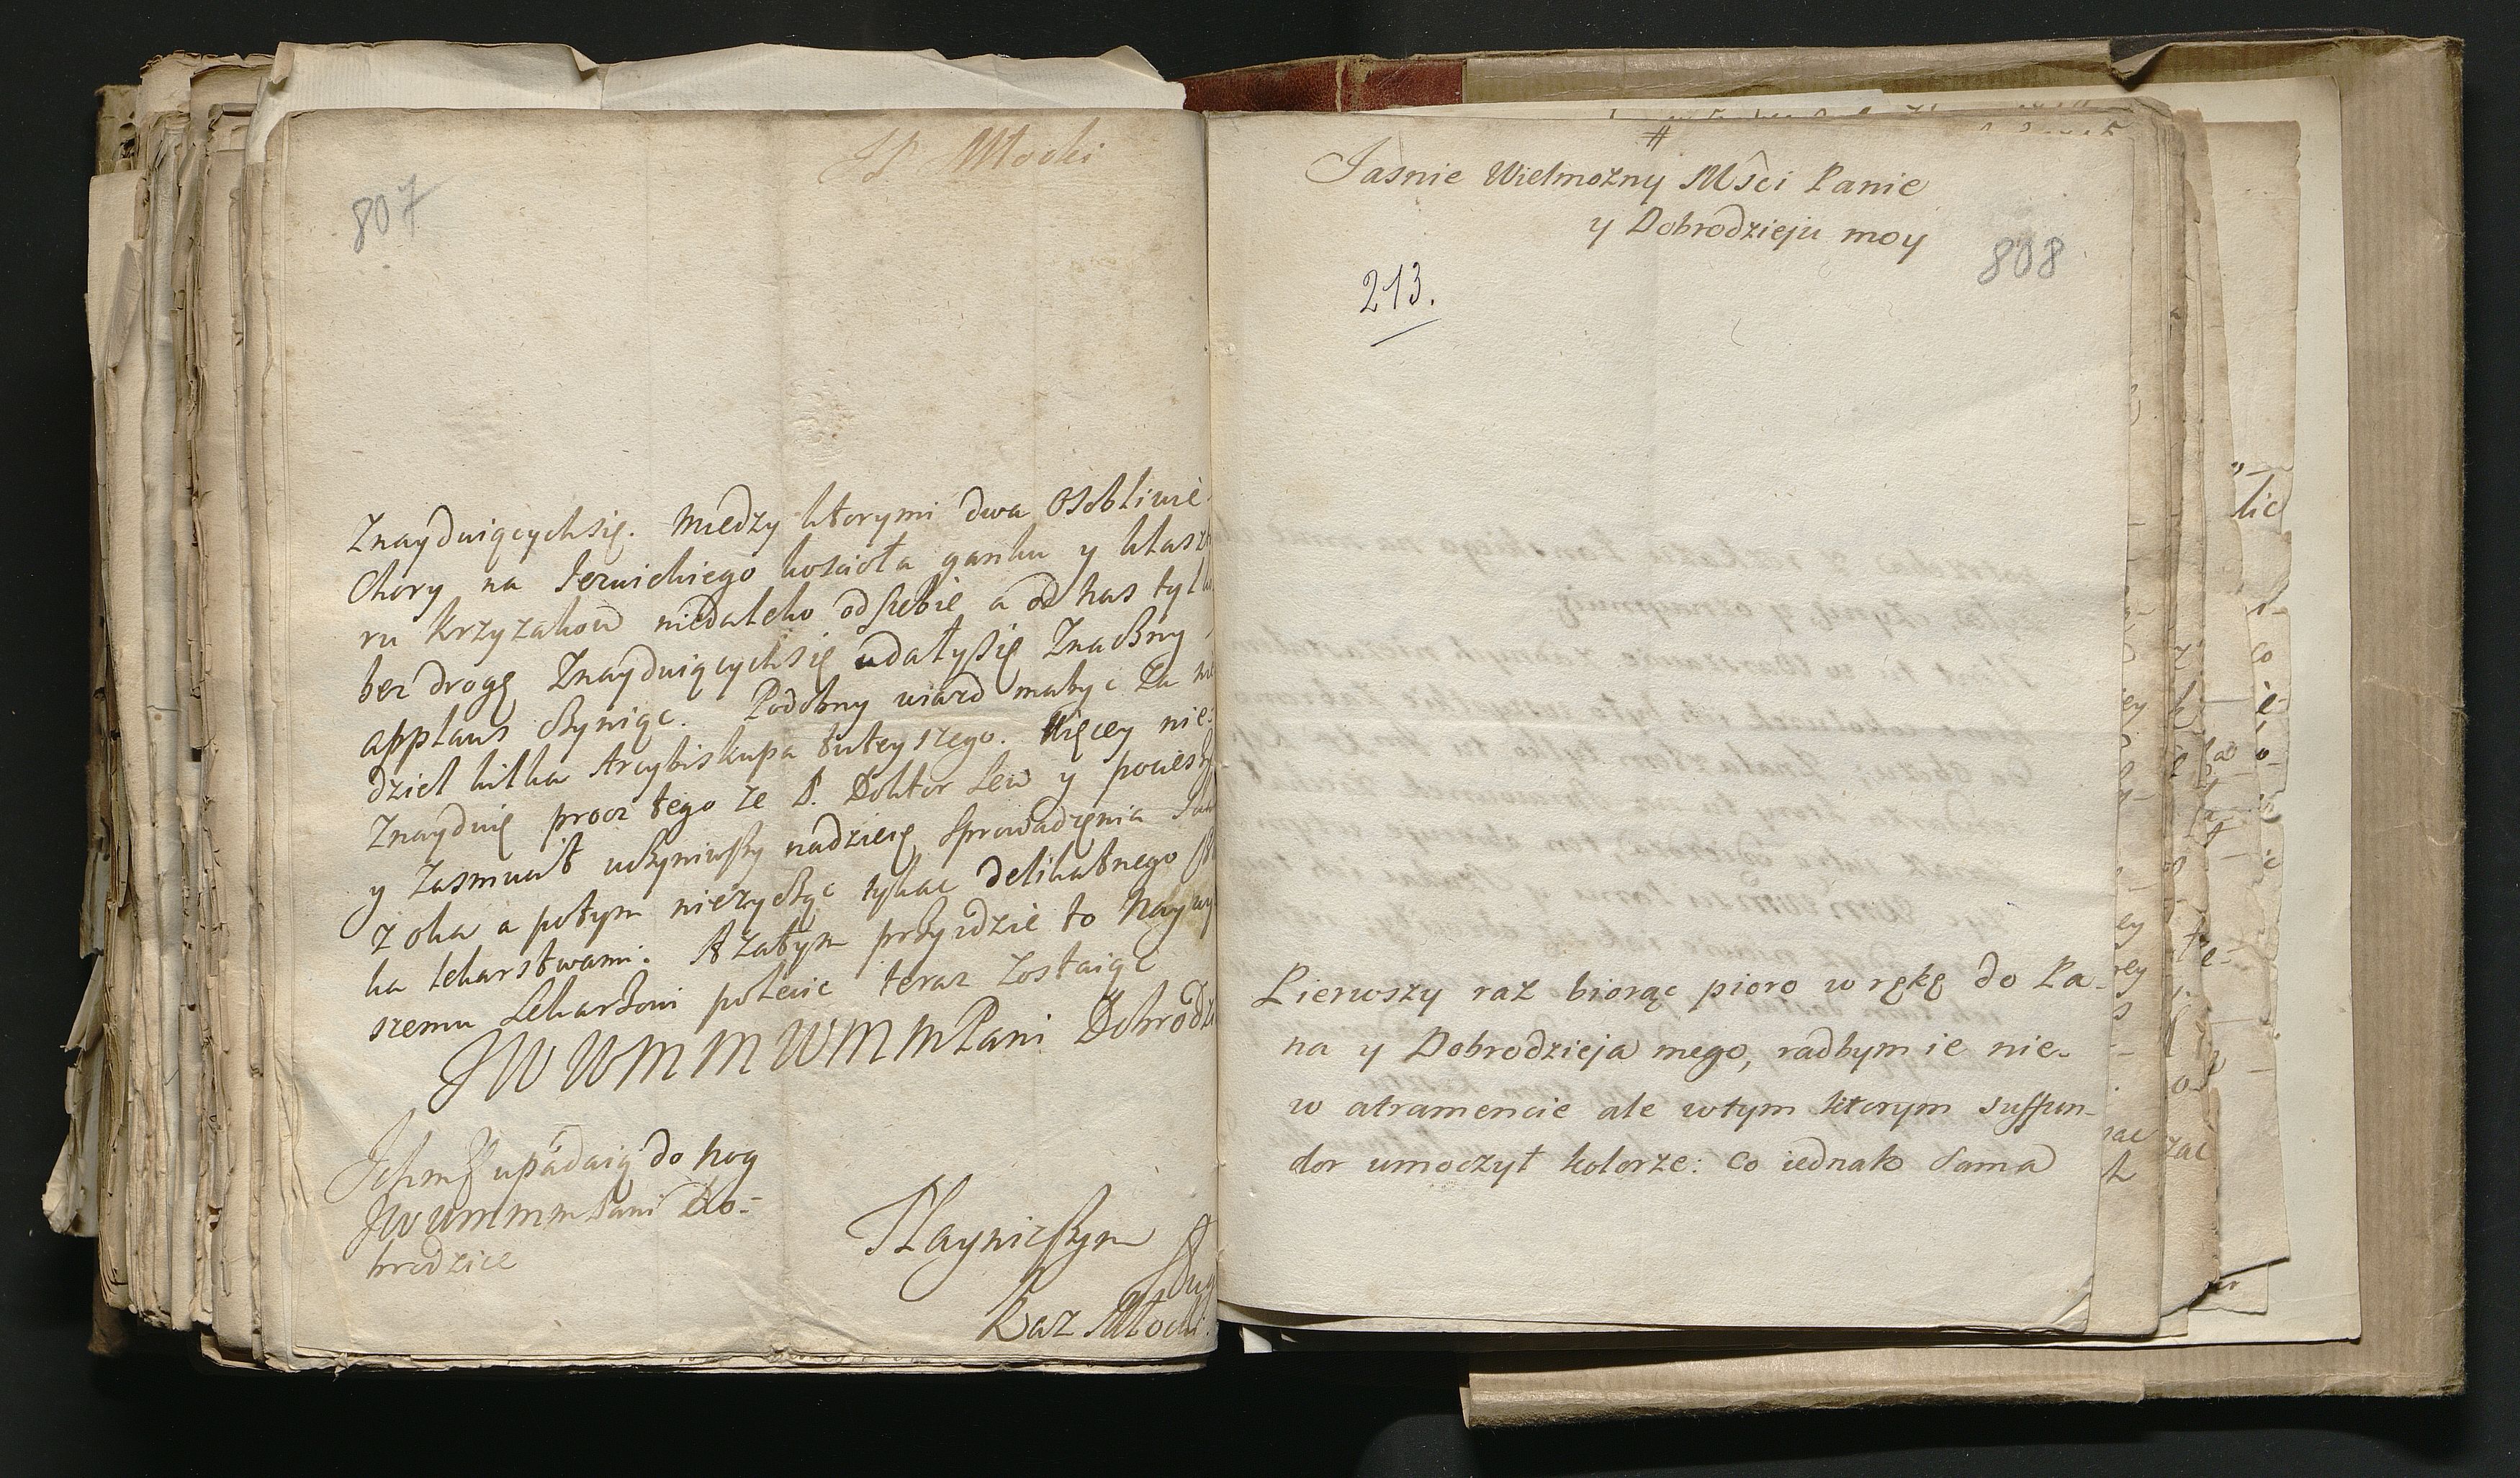 JP. Młocki
807
Znayduiących się. Między ktorymi dwa Osobliwie
Chory na Jezuickiego kościoła ganku y klasz
ru Krzyzakow niedaleko od siebie a od nas tyl
bez drogę Znayduiących się udały się Znaczny
applaus czyniąc. Podobny wiazd ma być za
dziel kilka Arcybiskupa tuteyszego. Więcey nie
Znayduię procz tego ze P. Doktor Lew y pociesz
y zasmucił uczyniwszy nadzieię sprowadzenia
z oka a potym nieżycząc tykac delikatnego
ka lekarstwami. A zatym przyidzie to Naywy
szemu Lekarzowi polecic teraz zostaiąc
JWWMMWMMPani Dobrodz
upadaią do nog
JWWMMMPani Do-
brodzice
Nayniższym
Kaz Młocki.
#
Jaśnie Wielmożny Mści Panie
y Dobrodzieju moy
808
213.
Pierwszy raz biorąc pioro w rękę do Pa-
na y Dobrodzieja mego, radbym ie nie-
w atramencie ale w tym ktorym suffun-
dor umoczył kolorze: co iednak sama